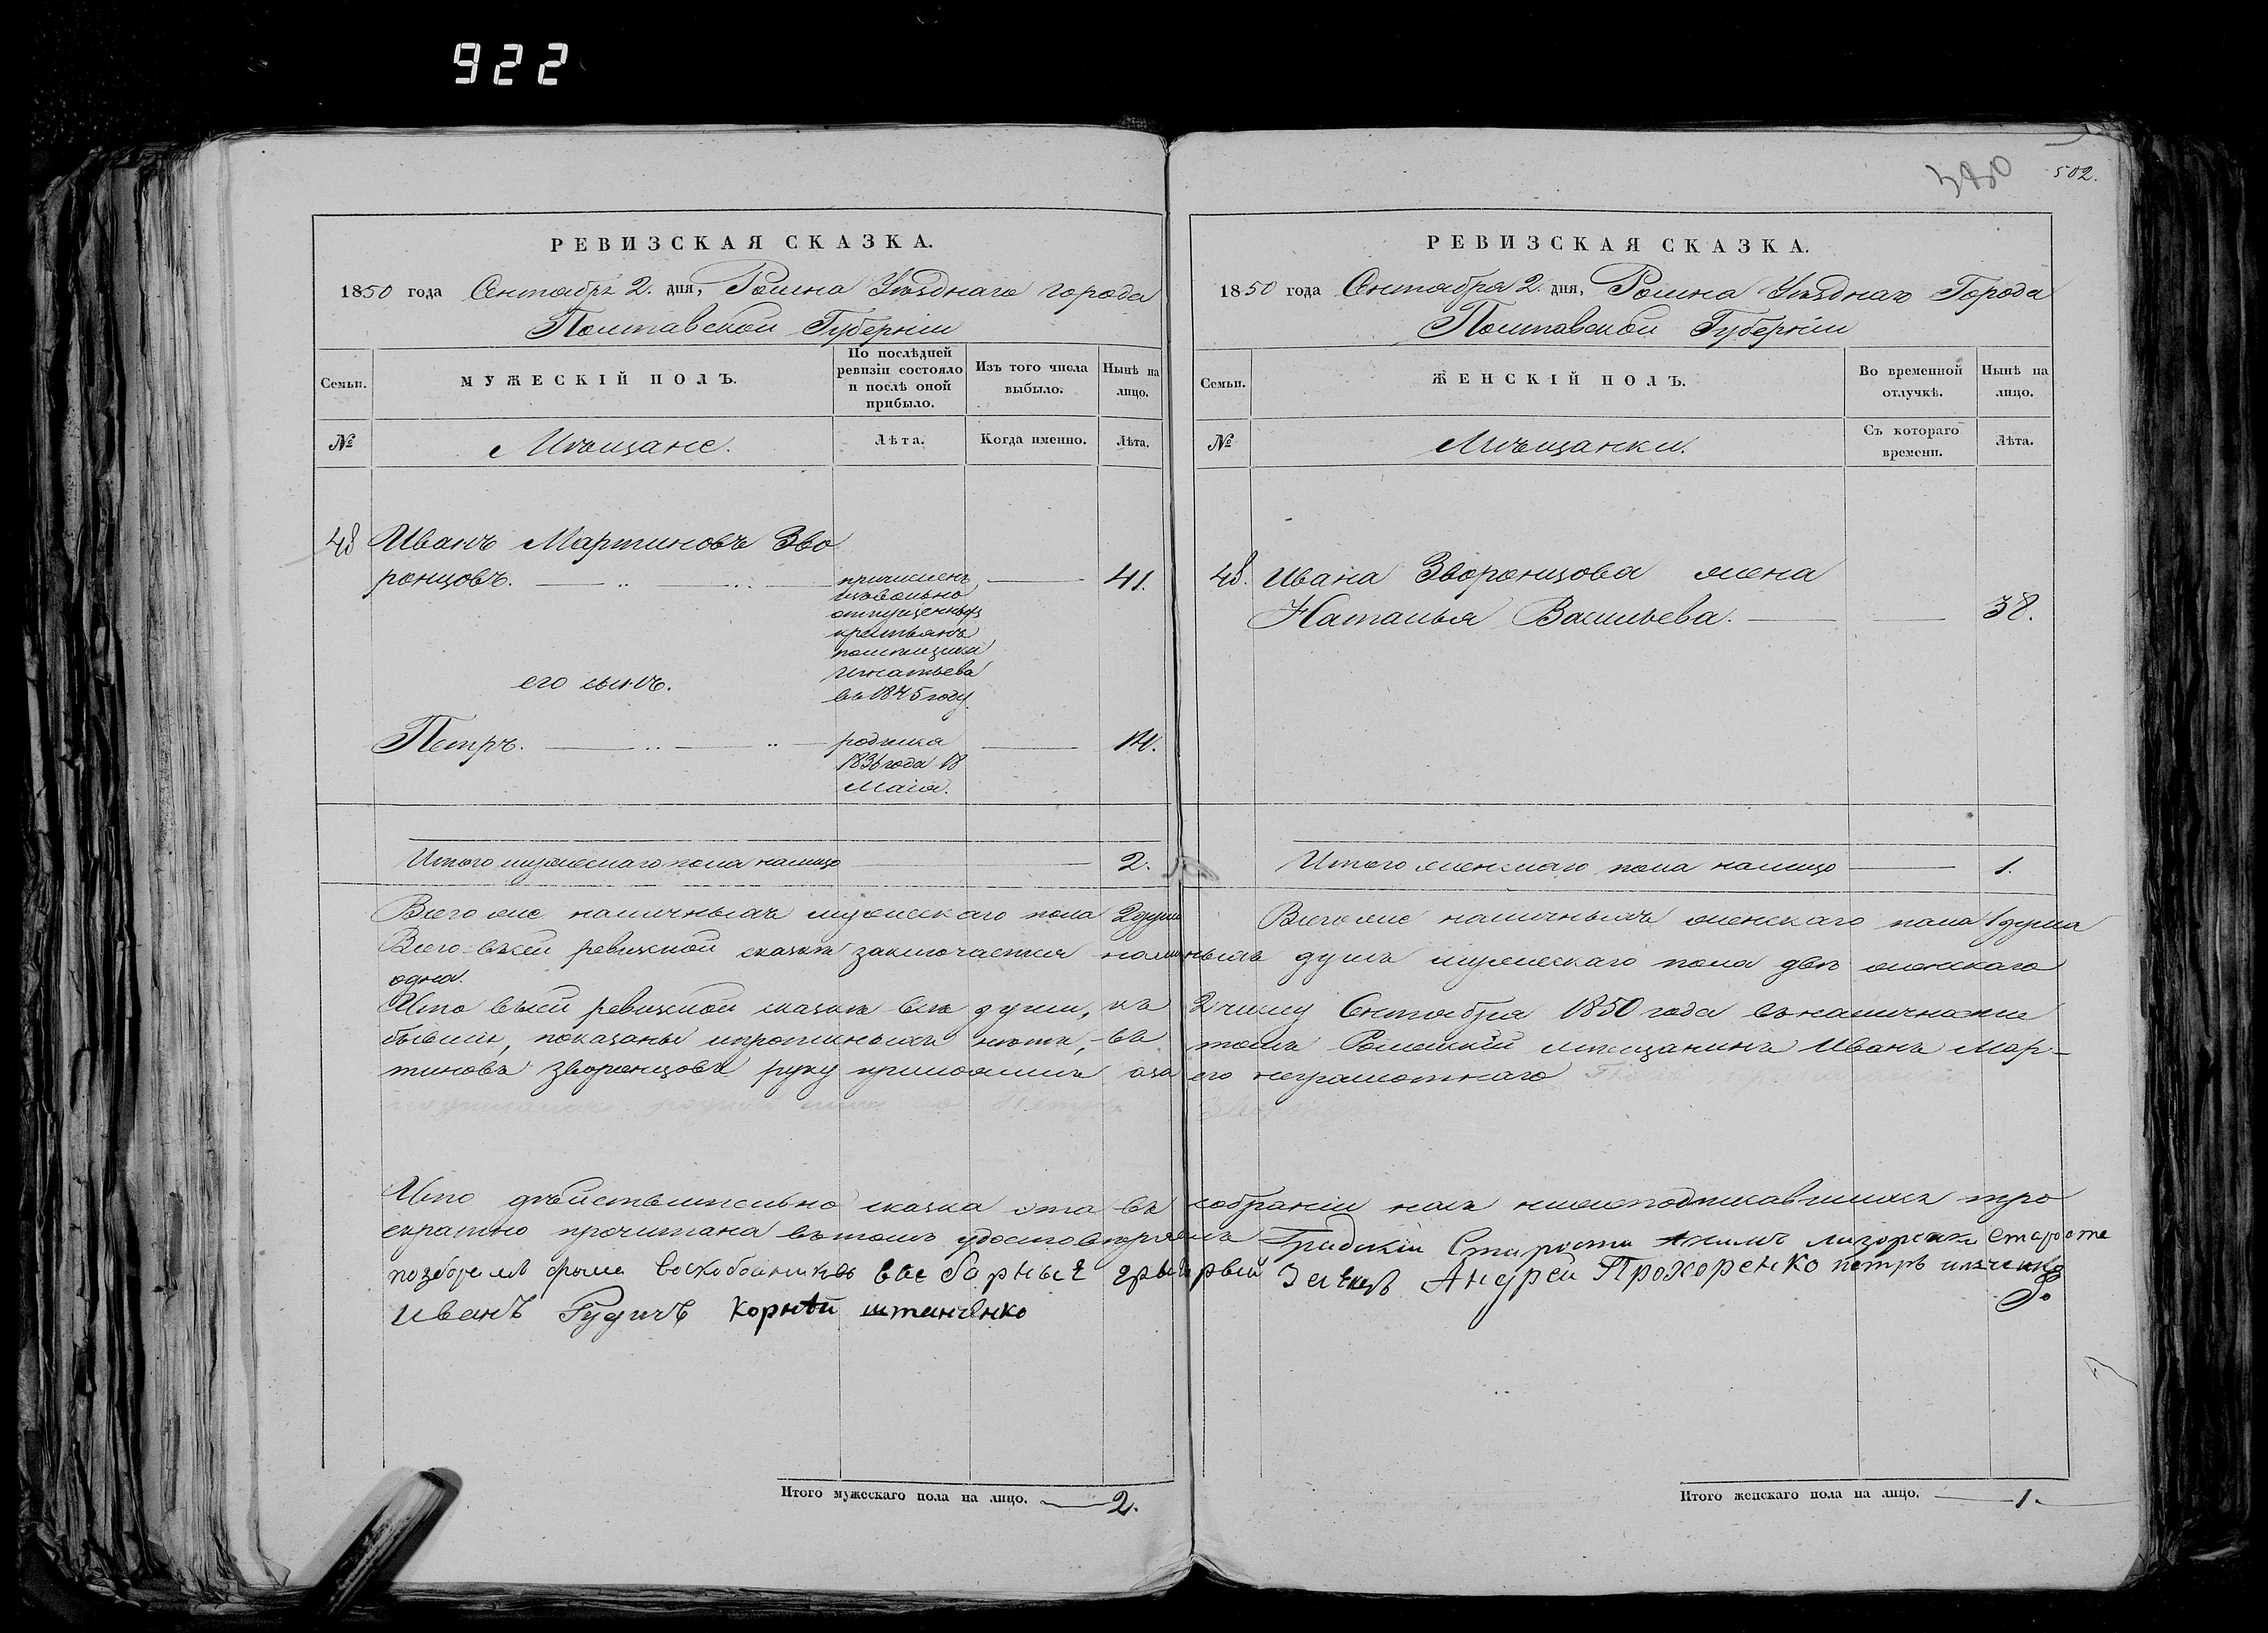 922
380
502.
РЕВИЗСКАЯ СКАЗКА.
1850 года Сентября 2. дня, Ромна Уѣзднаго города
Полтавской Губерніи
Семьи.
МУЖЕСКІЙ ПОЛЪ.
По послѣдней ревизіи состояло и послѣ оной прибыло.
Изъ того числа выбыло.
Нынѣ на лицо.
№
Мѣщане.
Лѣта.
Когда именно.
Лѣта.
48 Иванъ Мартиновъ Зво
ронцовъ. 41.
причисленъ
извольно
отпущенныхъ
крестьянъ
помѣщика
Игнатьева
въ 1845 году.
его сынъ.
Петръ. 14.
родился
1836 года 18
Маія.
Итого мужескаго пола налицо 2.
РЕВИЗСКАЯ СКАЗКА.
1850 года Сентября 2. дня, Ромна Уѣзднаго Города
Полтавской Губерніи
Семьи.
ЖЕНСКІЙ ПОЛЪ.
Во временной отлучкѣ.
Нынѣ на лицо.
№
Мѣщанки.
Съ котораго времени.
Лѣта.
48. Ивана Зворонцова жена
Наталья Васильева. 38.
Итого женскаго пола налицо 1.
Всего же наличныхъ мужескаго пола 2 души
Всего же наличныхъ женскаго пола 1 душа
Всего всей ревизкой сказкѣ заключается наличныхъ душъ мужескаго пола двѣ женскаго
одна.
Что всей ревизкой сказкѣ всѣ души, къ 2 числу Сентября 1850 года въ наличности
бывшія, показаны ипрописныхъ нѣтъ, въ томъ Роменскій мѣщанинъ Иванъ Мар-
тиновъ Зворонцовъ руку приложилъ аза его неграмотнаго
Что дѣйствительно сказка эта въ собраніи насъ нижеподписавшихся тро
екратно прочитана въ томъ удостовѣряемъ Градскій Староста Староста
Фома Воскобойниковъ Андрей Прохоренко петръ
Иванъ Рудичъ Корнѣй штанченко
Итого мужескаго пола на лицо. 2.
Итого женскаго пола на лицо. 1.